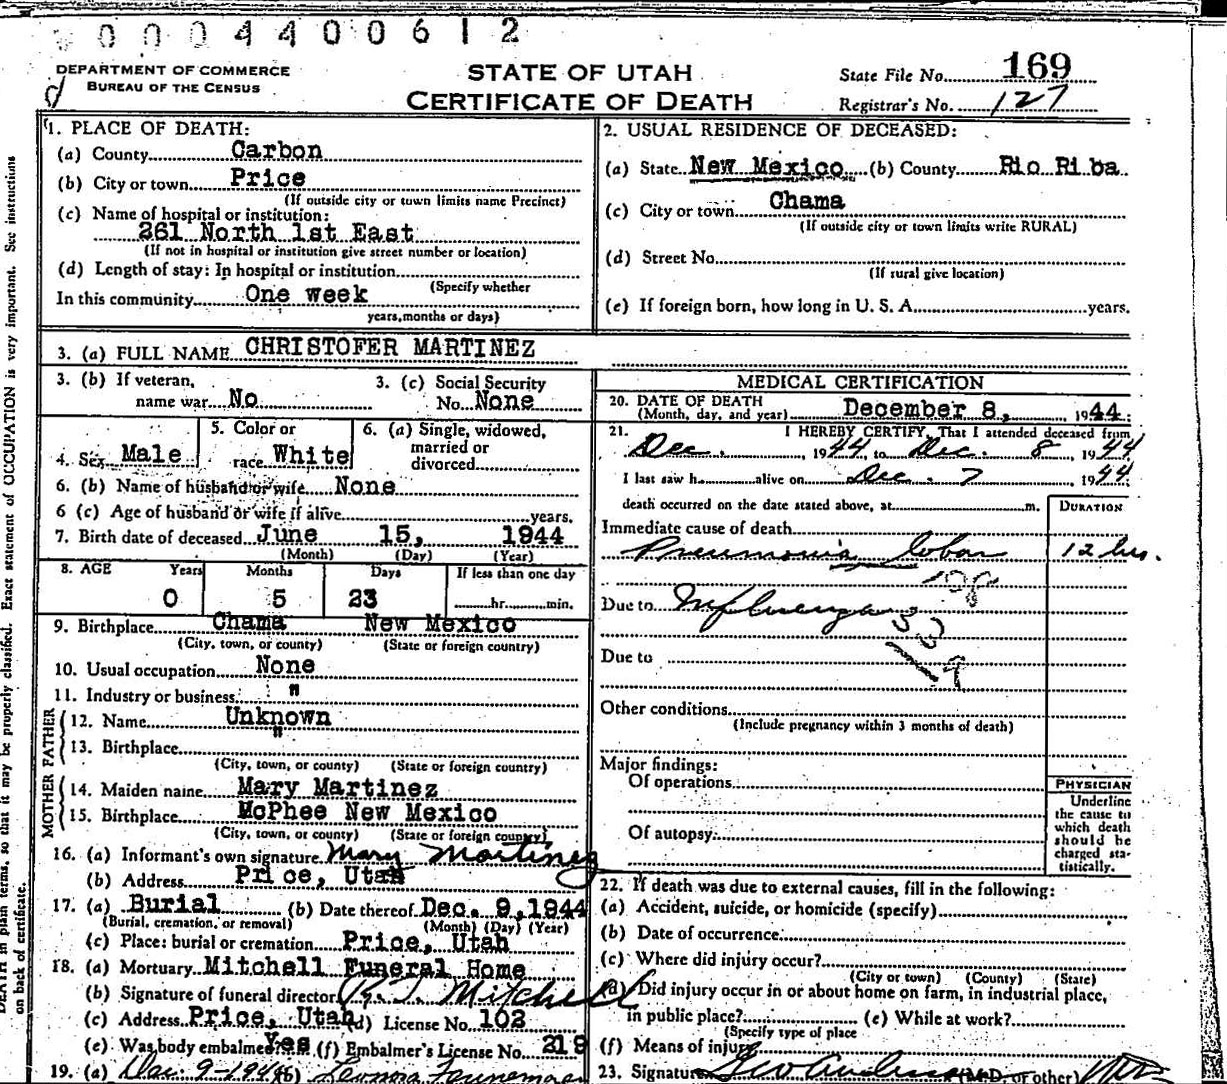 0004400612
DEPARTMENT OF COMMERCE
BUREAU OF THE CENSUS
STATE OF UTAH
CERTIFICATE OF DEATH
State File No. 169
Registrar's No. 127
1. PLACE OF DEATH:
(a) County Carbon
(b) City or town Price
(If outside city or town limits name Precinct)
(c) Name of hospital or institution:
261 North 1st East
(If not in hospital or institution give street number or location)
(d) Length of stay: In hospital or institution
(Specify whether
In this community One week
years, months or days)
2. USUAL RESIDENCE OF DECEASED:
(a) State New Mexico (b) County Rio Riba
(c) City or town Chama
(If outside city or town limits write RURAL)
(d) Street No.
(If rural give location)
(e) If foreign born, how long in U. S. A. years.
3. (a) FULL NAME CHRISTOFER MARTINEZ
3. (b) If veteran,
name war No
3. (c) Social Security
No. None
4. Sex Male
5. Color or
race White
6. (a) Single, widowed,
married or
divorced
6. (b) Name of husband or wife None
6 (c) Age of husband or wife if alive years.
7. Birth date of deceased June 15, 1944
(Month) (Day) (Year)
8. AGE Years Months Days If less than one day
0 5 23 hr. min.
9. Birthplace Chama New Mexico
(City, town, or county) (State or foreign country)
10. Usual occupation None
11. Industry or business "
FATHER
12. Name Unknown
13. Birthplace "
(City, town, or county) (State or foreign country)
MOTHER
14. Maiden name Mary Martinez
15. Birthplace McPhee New Mexico
(City, town, or county) (State or foreign country)
16. (a) Informant's own signature Mary Martinez
(b) Address Price, Utah
17. (a) Burial (b) Date thereof Dec. 9, 1944
(Burial, cremation, or removal) (Month) (Day) (Year)
(c) Place: burial or cremation Price, Utah
18. (a) Mortuary Mitchell Funeral Home
(b) Signature of funeral director R. T. Mitchell
(c) Address Price, Utah (d) License No. 102
(e) Was body embalmed Yes (f) Embalmer's License No. 219
19. (a) Dec. 9-1944 (b) Leonora
MEDICAL CERTIFICATION
20. DATE OF DEATH
(Month, day, and year) December 8, 1944
21. I HEREBY CERTIFY, That I attended deceased from
Dec. 1944 to Dec. 8 1944
I last saw h alive on Dec. 7 1944
death occurred on the date stated above, at m.
DURATION
Immediate cause of death
Pneumonia lobar 12 hrs.
108
Due to Influenza 33
Due to
Other conditions
(Include pregnancy within 3 months of death)
Major findings:
Of operations
Of autopsy
PHYSICIAN
Underline
the cause to
which death
should be
charged sta-
tistically.
22. If death was due to external causes, fill in the following:
(a) Accident, suicide, or homicide (specify)
(b) Date of occurrence
(c) Where did injury occur?
(City or town) (County) (State)
(d) Did injury occur in or about home on farm, in industrial place,
in public place? (e) While at work?
(Specify type of place
(f) Means of injury
23. Signature (M.D. or other)
DEATH in plain terms, so that it may be properly classified. Exact statement of OCCUPATION is very important. See instructions
on back of certificate.